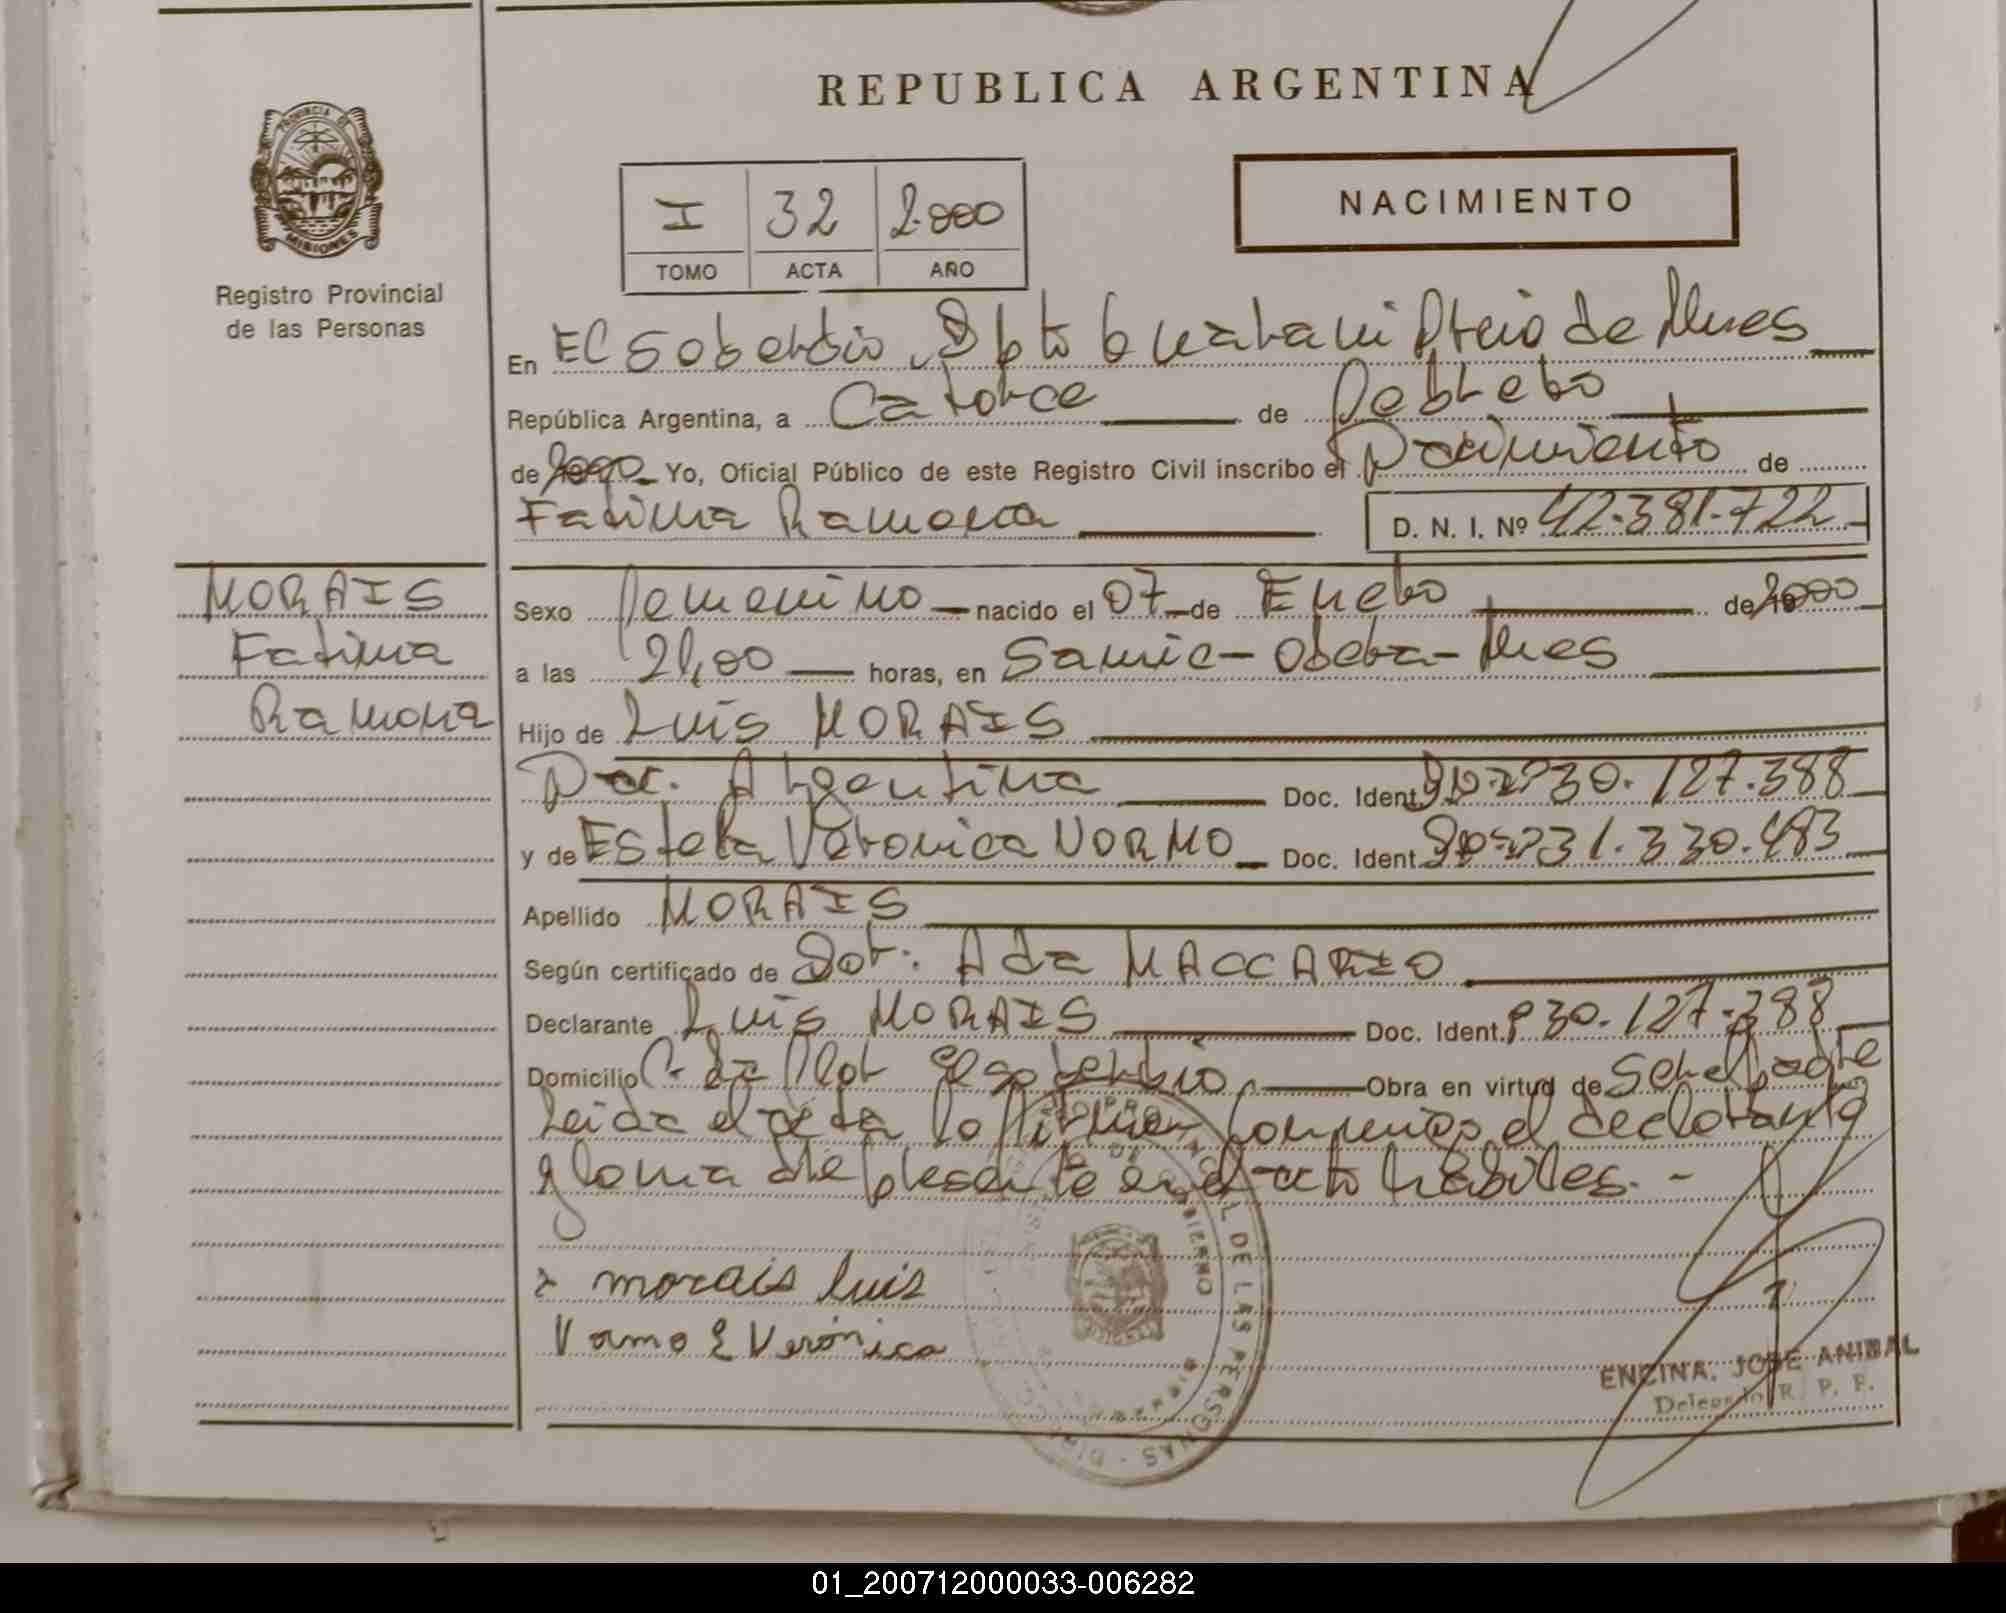 REPUBLICA ARGENTINA
PROVINCIA DE
MISIONES
Registro Provincial
de las Personas
I 32 2.000
TOMO ACTA AÑO
NACIMIENTO
En El Soberbio, Dpto Guarani Pcia de Mnes
República Argentina, a Catorce de Febrero
de 2000 Yo, Oficial Público de este Registro Civil inscribo el Nacimiento de
Fatima Ramona D. N. I. Nº 42.381.722
MORAIS
Fatima
Ramona
Sexo Femenino nacido el 07 de Enero de 2000
a las 21,00 horas, en Samic - Obera - Mnes
Hijo de Luis MORAIS
Nac. Argentina Doc. Ident. 30.127.388
y de Estela Veronica Doc. Ident. 31.330.483
Apellido MORAIS
Según certificado de Dra. Ada MACCARIO
Declarante Luis MORAIS Doc. Ident. 30.127.388
Domicilio El Soberbio Obra en virtud de Ser el padre
Leida el acta la firman conmigo el declarante
y la madre presente en el acto habiles. -
morais luis
E Verónica
L DE LAS PERSONAS
ENCINA, JOSE ANIBAL
Delegado R. P. P.
01_200712000033-006282